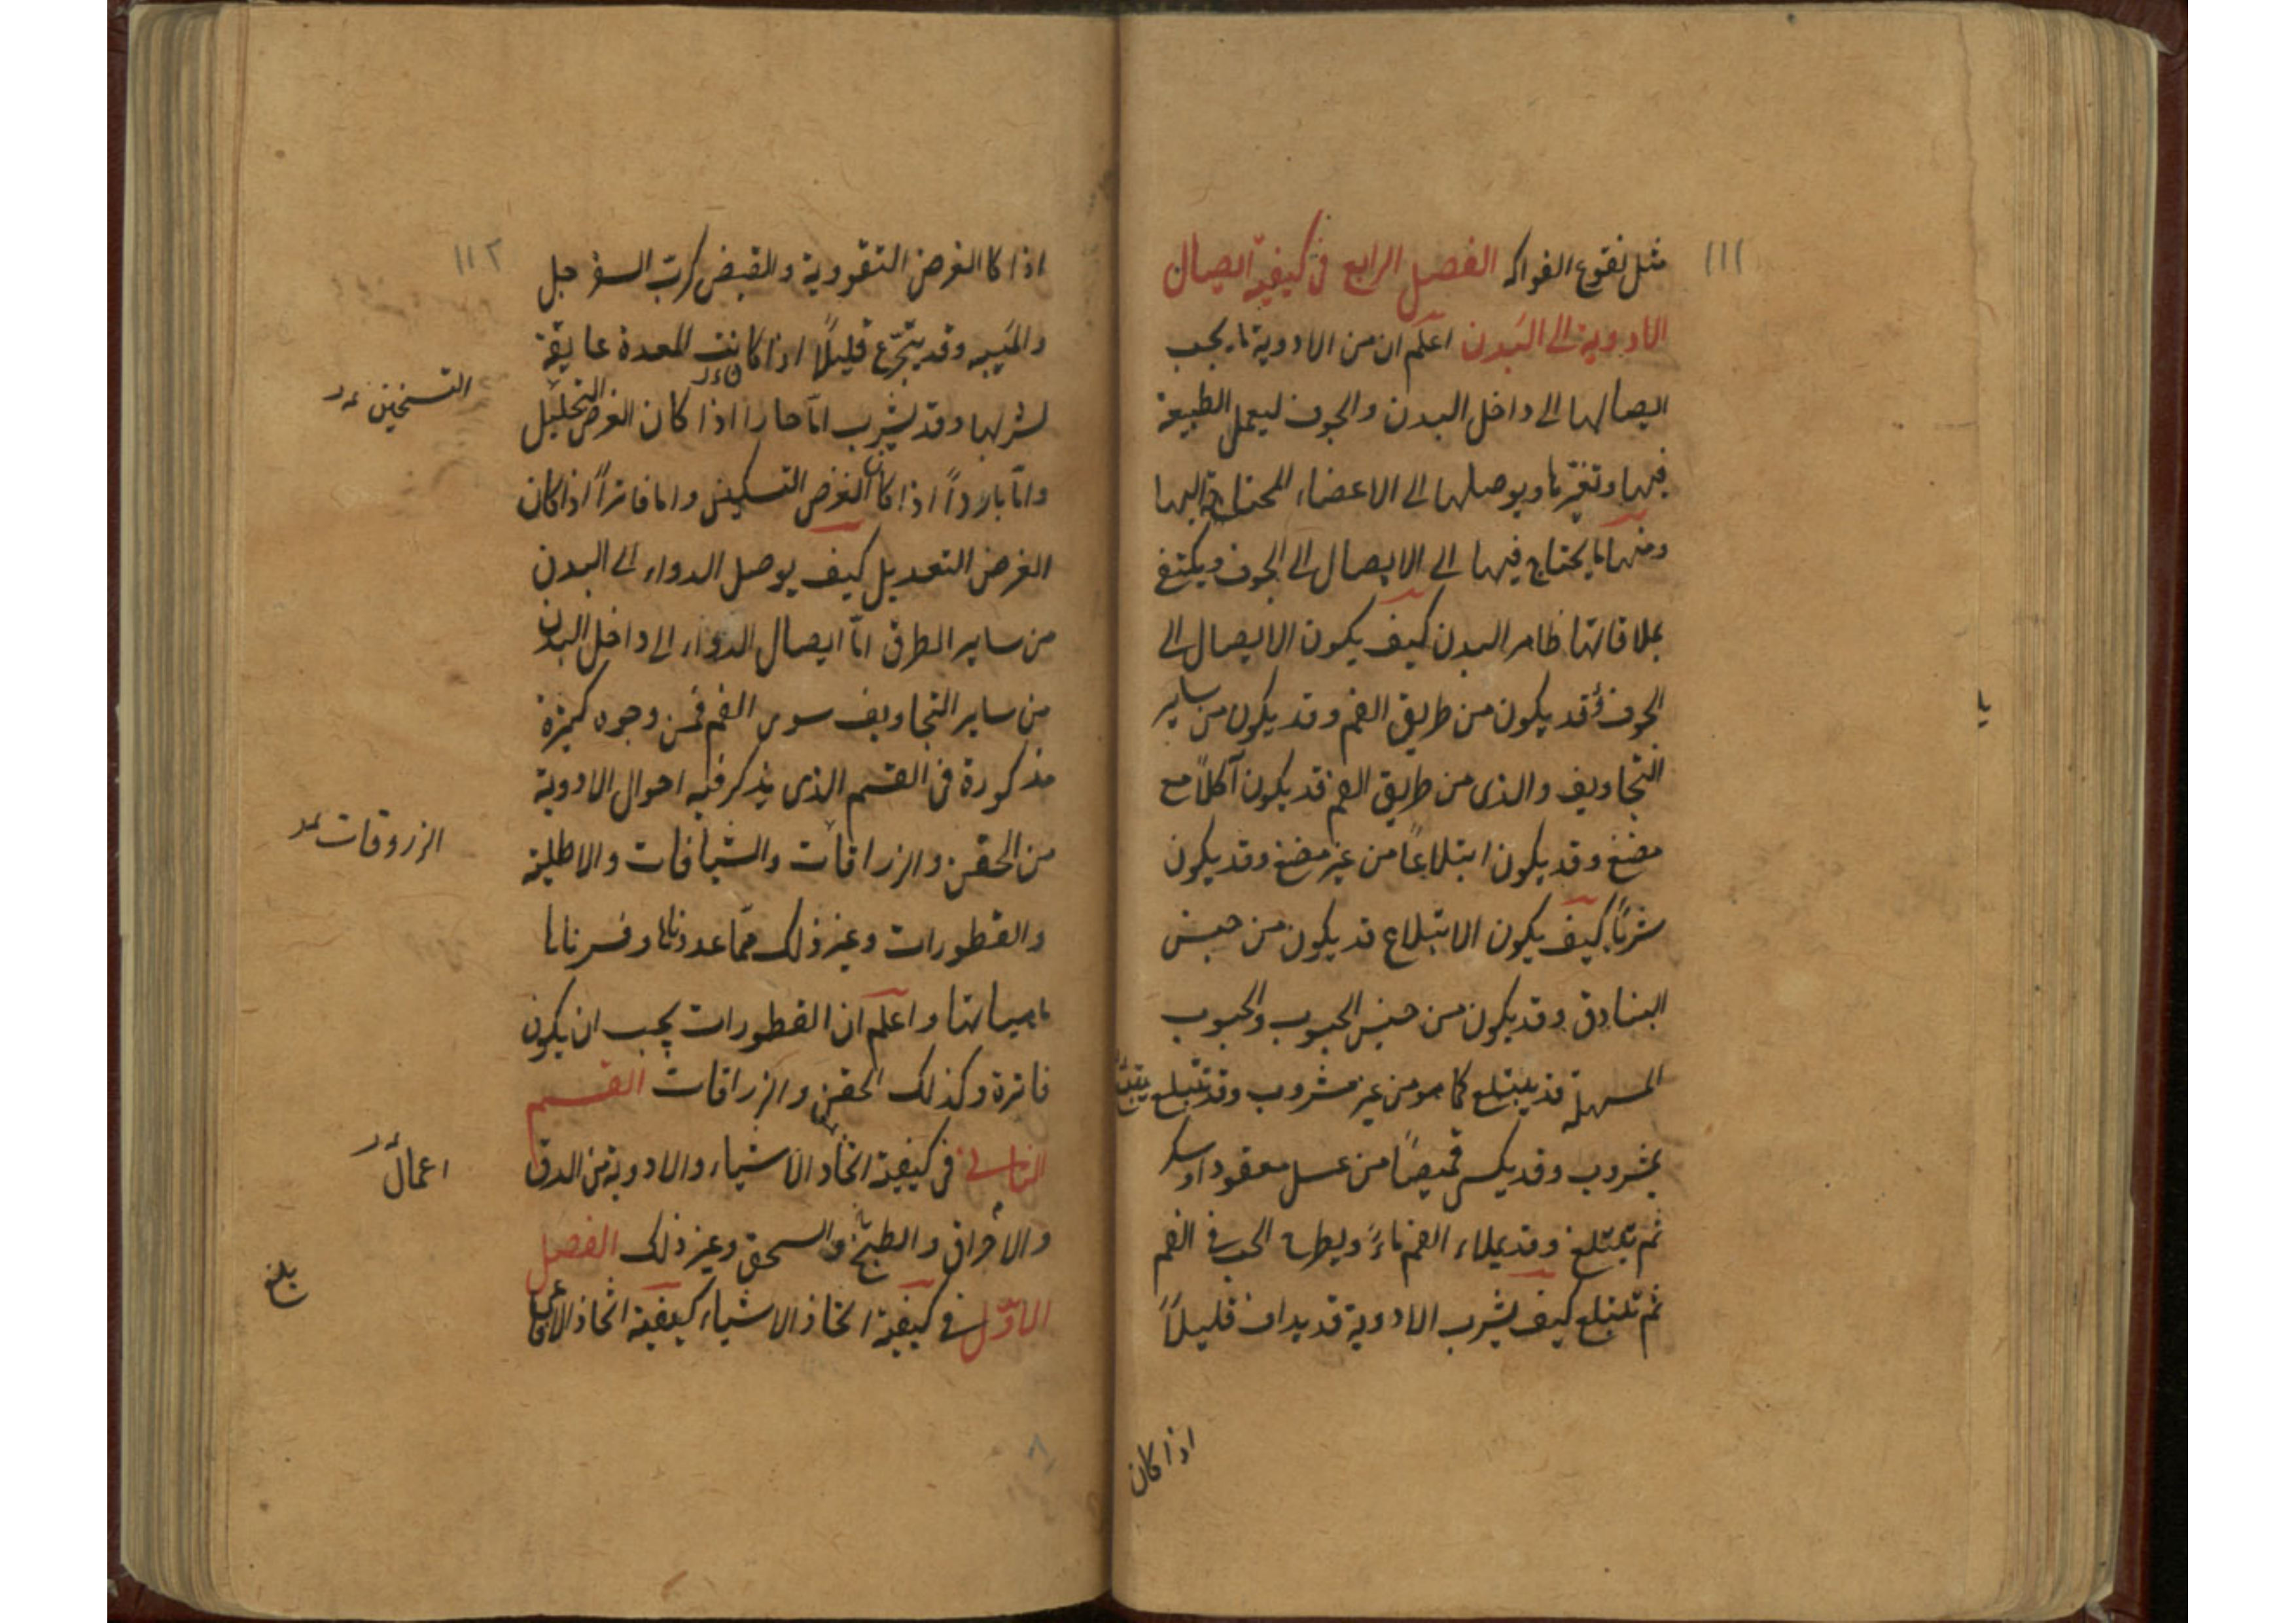 ١١١
مثل نقوع الفواكه الفصل الرابع فى كيفية ايصال
الادوية الى البدن اعلم ان من الادوية ما يجب
ايصالها الى داخل البدن والجوف ليعمل الطبيعة
فيها وتغيّرها ويوصلها الى الاعضاء المحتاجة اليها
ومنها ما يحتاج فيها الى الايصال الى الجوف ويكتفى
بملاقاتها ظاهر البدن كيف يكون الايصال الى
الجوف وقد يكون من طريق الفم وقد يكون من ساير
التجاويف والذى من طريق الفم قد يكون آكلاً مع
مضغ وقد يكون ابتلاعاً من غير مضغ وقد يكون
شرباً كيف يكون الابتلاع قد يكون من جنس
البنادق وقد يكون من جنس الحبوب والحبوب
المسهلة قد يبتلع كما هو من غير مشروب وقد تبتلع
بمشروب وقد يكسى قميصاً من عسل معقود او سكر
ثم تبتلع وقد يملاء الفم ماءً ويطرح الحب فى الفم
ثم تبتلع كيف يشرب الادوية قد يداف قليلاً
اذا كان
يا
١١٢
اذا كا الغرض التقووية والقبض كرب السفرجل
والميبه وقد يتجرّع قليلاً اذا كانت المعدة عايقة
لشربها وقد يشرب امّا حارا اذا كان الغرض التحليل
وامّا بارداً اذا كان الغرض التسكين واما فاتراً اذا كان
الغرض التعديل كيف يوصل الدواء الى البدن
من ساير الطرق امّا ايصال الدواء الى داخل البدن
من ساير التجاويف سوى الفم فمن وجوه كثيرة
مذكورة فى القسم الذى يذكر فيه احوال الادوية
من الحقن والزراقات والشيافات والاطلية
والقطورات وغير ذلك ممّا عددناها وفسرناها
ماهياتها واعلم ان القطورات يجب ان يكون
فاترة وكذلك الحقن والزراقات القسم
الثانى فى كيفية اتخاذ الاشياء والادوية من الدق
والاحراق والطبخ والسحق وغير ذلك الفصل
الاوّل فى كيفية اتخاذ الاشياء كيفية اتخاذ
التسخين
الزروقات
اعمال
بلغ
٨